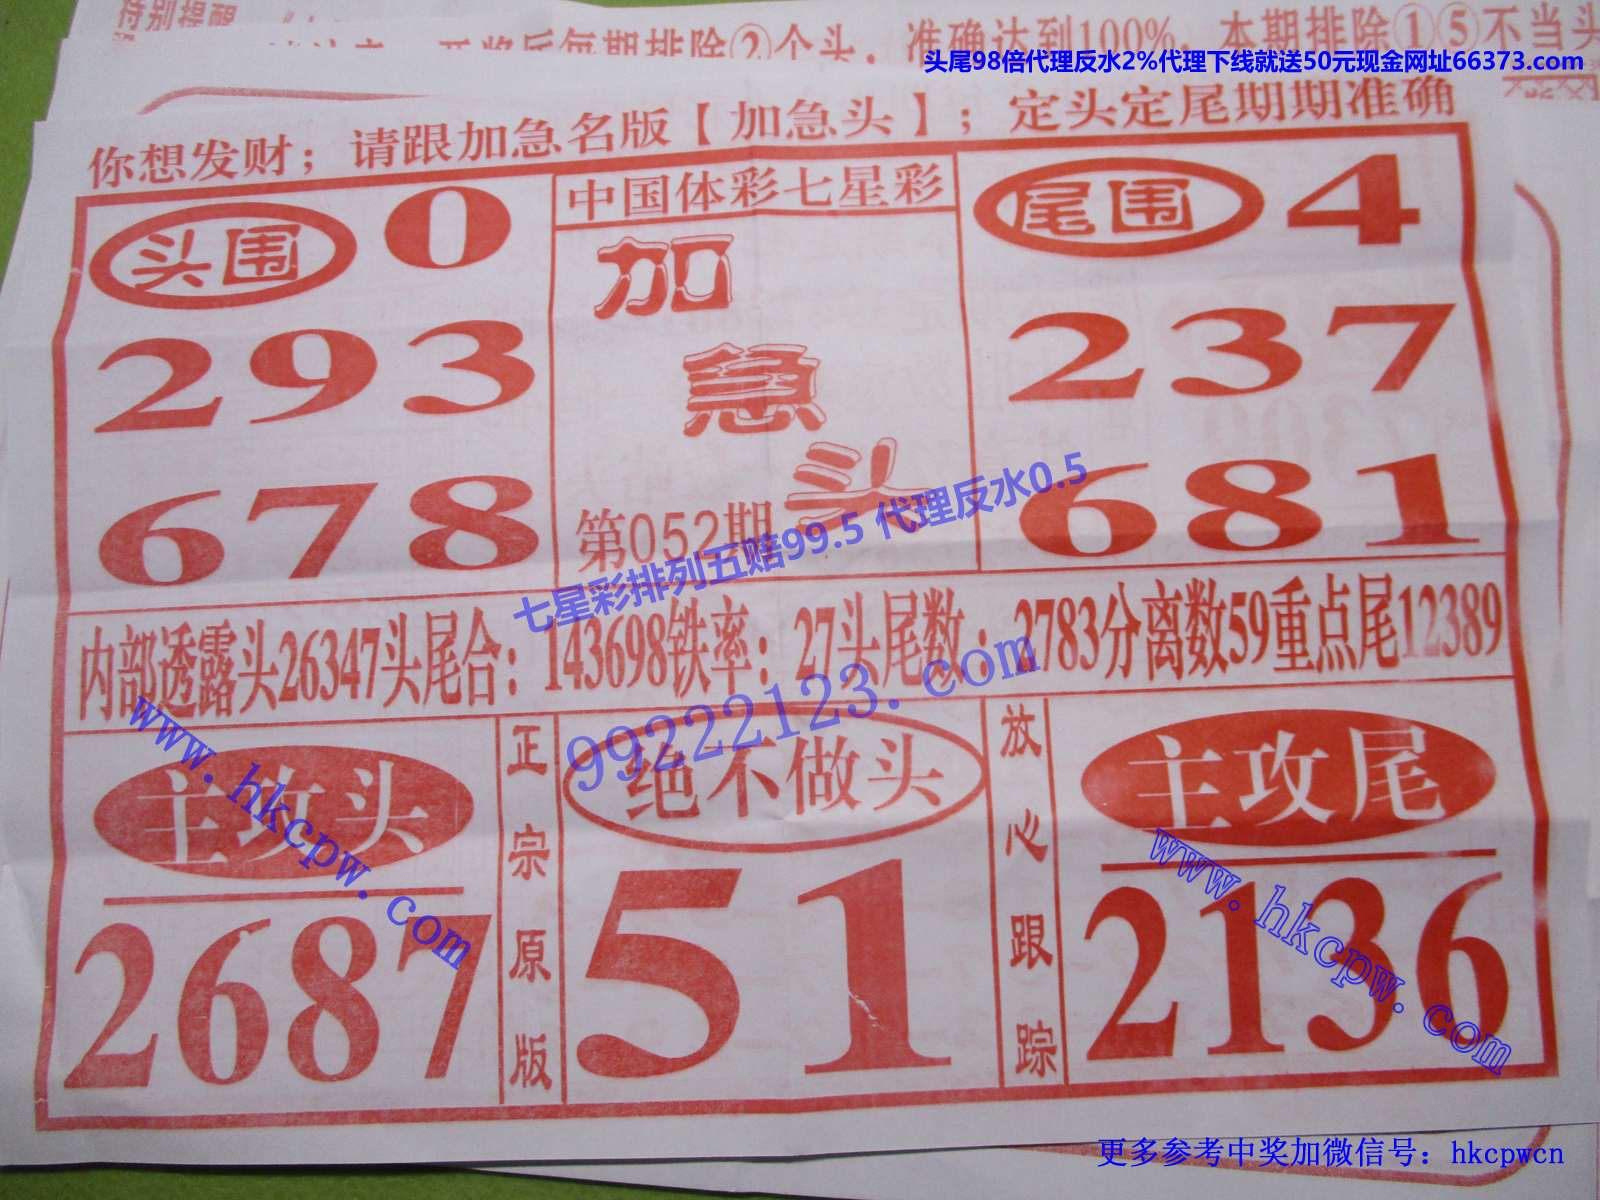 特别提醒
开奖后每期排除②个头，准确达到100%，本期排除①⑤不当头
头尾98倍代理反水2%代理下线就送50元现金网址66373.com
你想发财；请跟加急名版【加急头】；定头定尾期期准确
头围 0
293
678
中国体彩七星彩
加急头
第052期
尾围 4
237
681
七星彩排列五赔99.5 代理反水0.5
内部透露头26347头尾合：143698铁率：27头尾数：2783分离数59重点尾12389
99222123.com
主攻头
2687
正宗原版
绝不做头
51
放心跟踪
主攻尾
2136
www.hkcpw.com
www.hkcpw.com
更多参考中奖加微信号：hkcpwcn